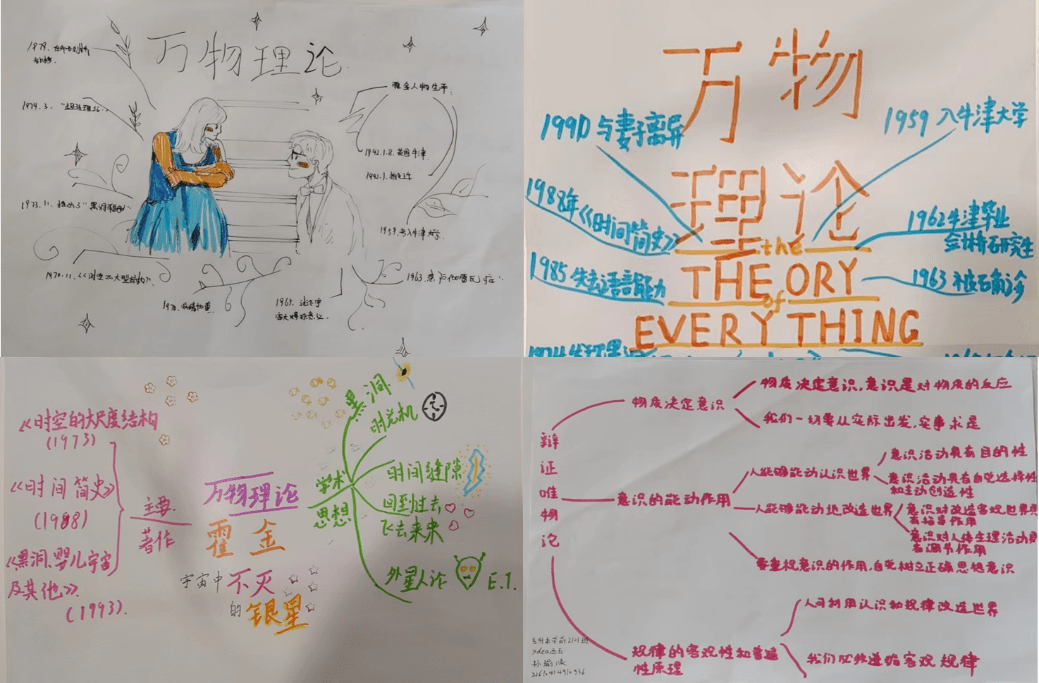 万物理论
霍金人物生平
1942.1.8. 英国牛津
1959. 考入牛津大学
1963.
1974.3.
1973.11.
1970.11.
万物
理论
the
THEORY
of
EVERY THING
1990 与妻子离异
1988年《时间简史》
1985 失去语言能力
1959 入牛津大学
1962牛津毕业
1963
《时空的大尺度结构
(1973)
《时间简史》
(1988)
《黑洞、婴儿宇宙
及其他》
(1993).
主要
著作
万物理论
霍金
宇宙中不灭
的银星
学术
思想
黑洞
时光机
时间缝隙
回到过去
飞去来来
外星人论
E.T.
辩证唯物论
物质决定意识
物质决定意识,意识是对物质的反应
我们一切要从实际出发,实事求是
意识的能动作用
人能够能动认识世界
意识活动具有目的性
意识活动具有自觉选择性
和主动创造性
人能够能动地改造世界
意识对改造客观世界具
有指导作用
意识对人体生理活动具
有调节作用
要重视意识的作用,自觉树立正确思想意识
规律的客观性和普遍
性原理
人可利用认识和规律改造世界
我们必须遵循客观规律